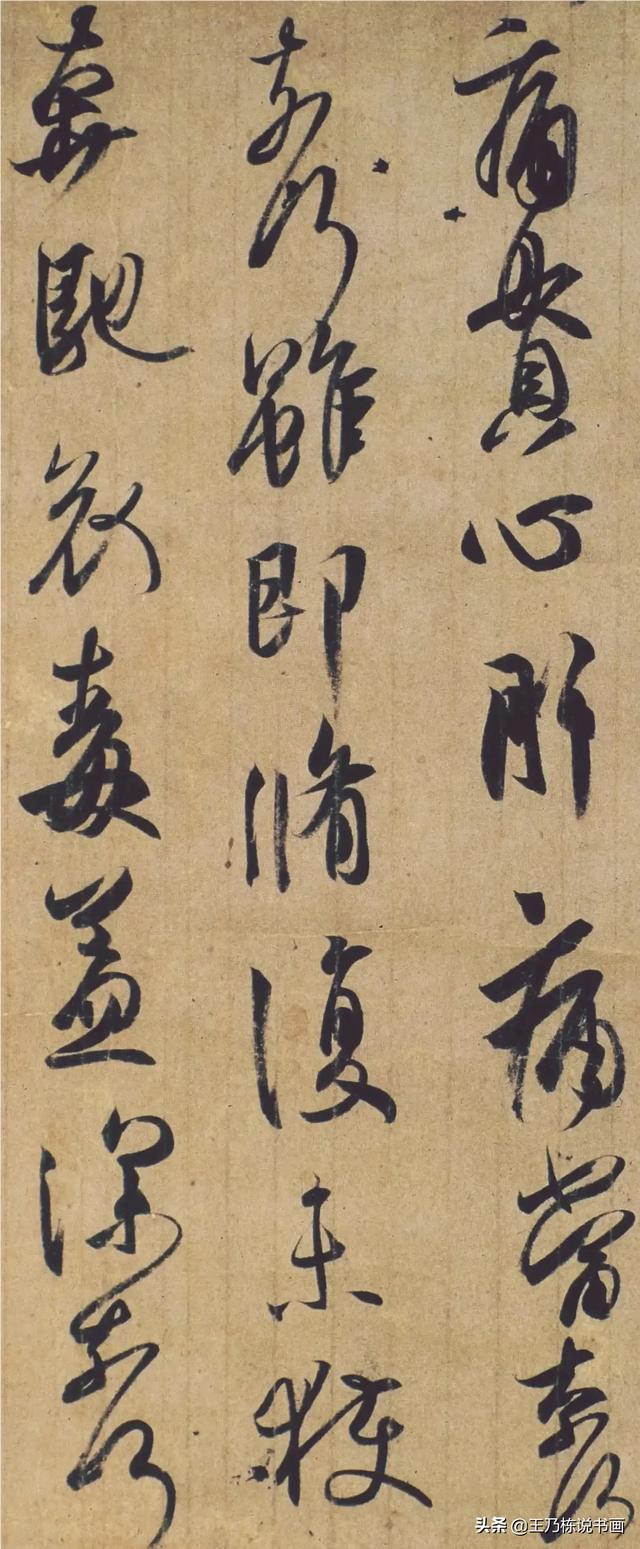 痛貫心肝痛當奈何
奈何雖即脩復未獲
奔馳哀毒益深奈何
头条 @王乃栋说书画